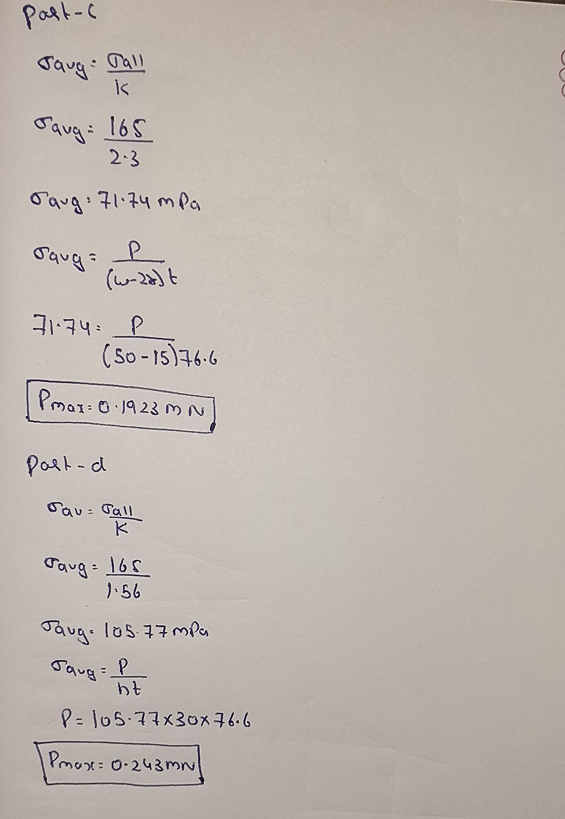 Part-C
σavg = σall / K
σavg = 165 / 2.3
σavg = 71.74 mPa
σavg = P / (w-2r)t
71.74 = P / (50-15)76.6
Pmax = 0.1923 mN
Part-d
σav = σall / K
σavg = 165 / 1.56
σavg = 105.77 mPa
σavg = P / ht
P = 105.77×30×76.6
Pmax = 0.243 mN